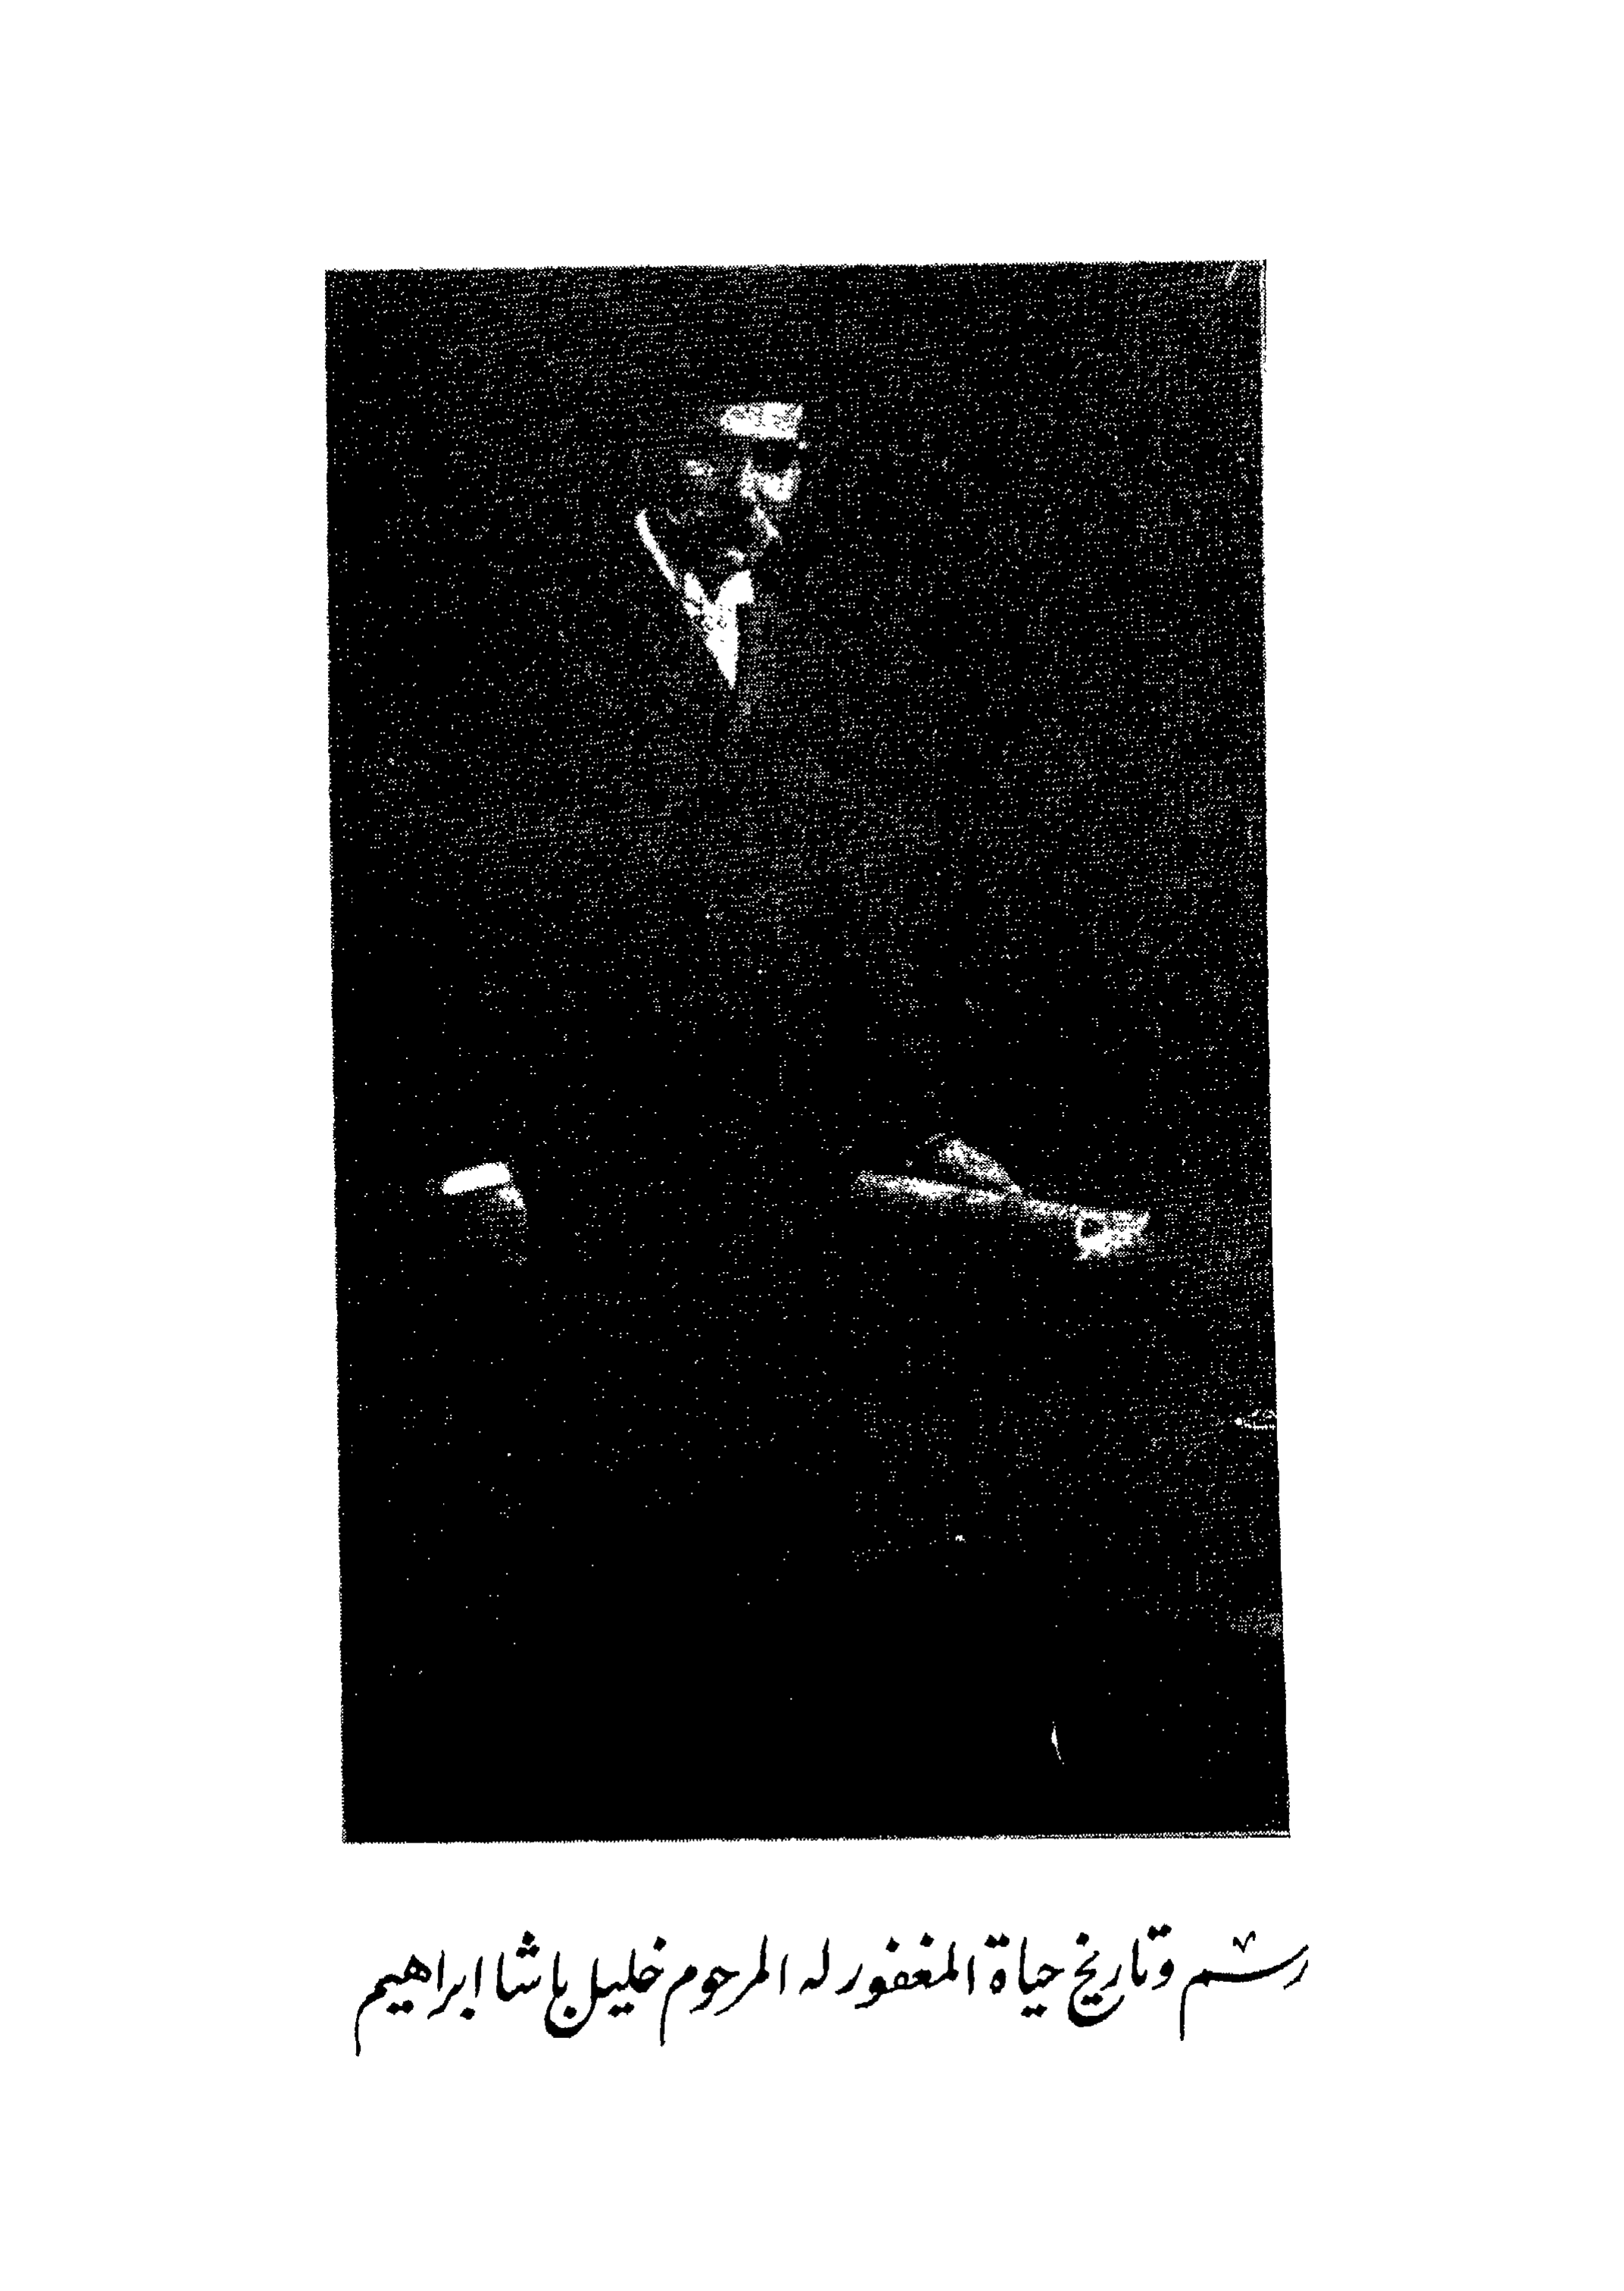 رسم وتاريخ حياة المغفور له المرحوم خليل باشا ابراهيم